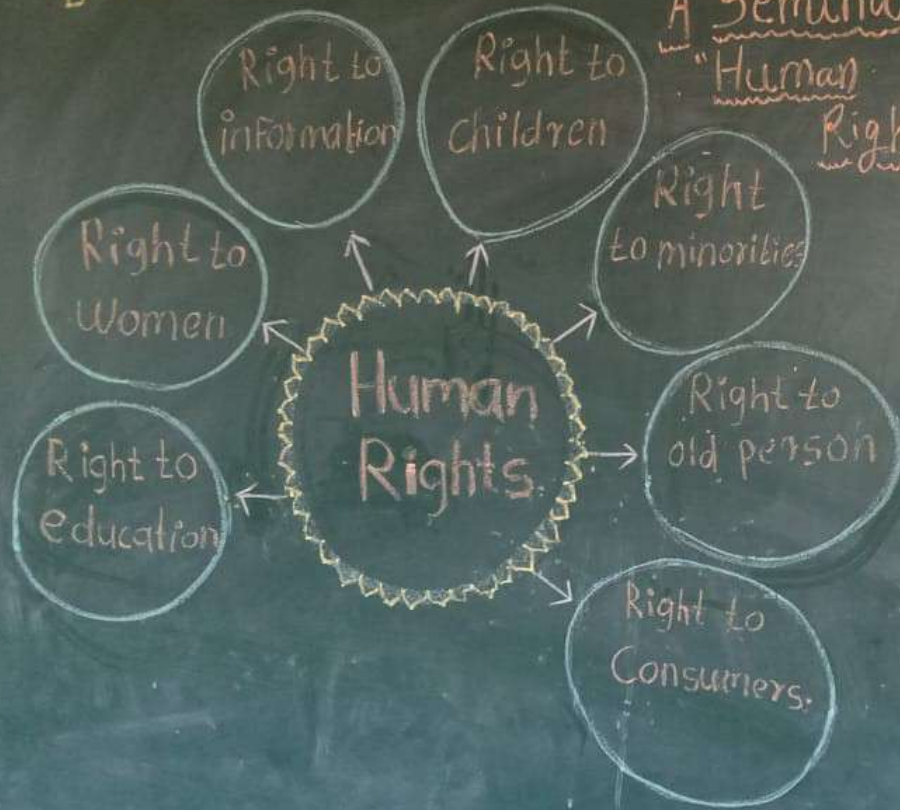 A Seminar
"Human
Righ
Right to
information
Right to
children
Right
to minorities
Right to
women
Human
Rights
Right to
old person
Right to
education
Right to
Consumers.